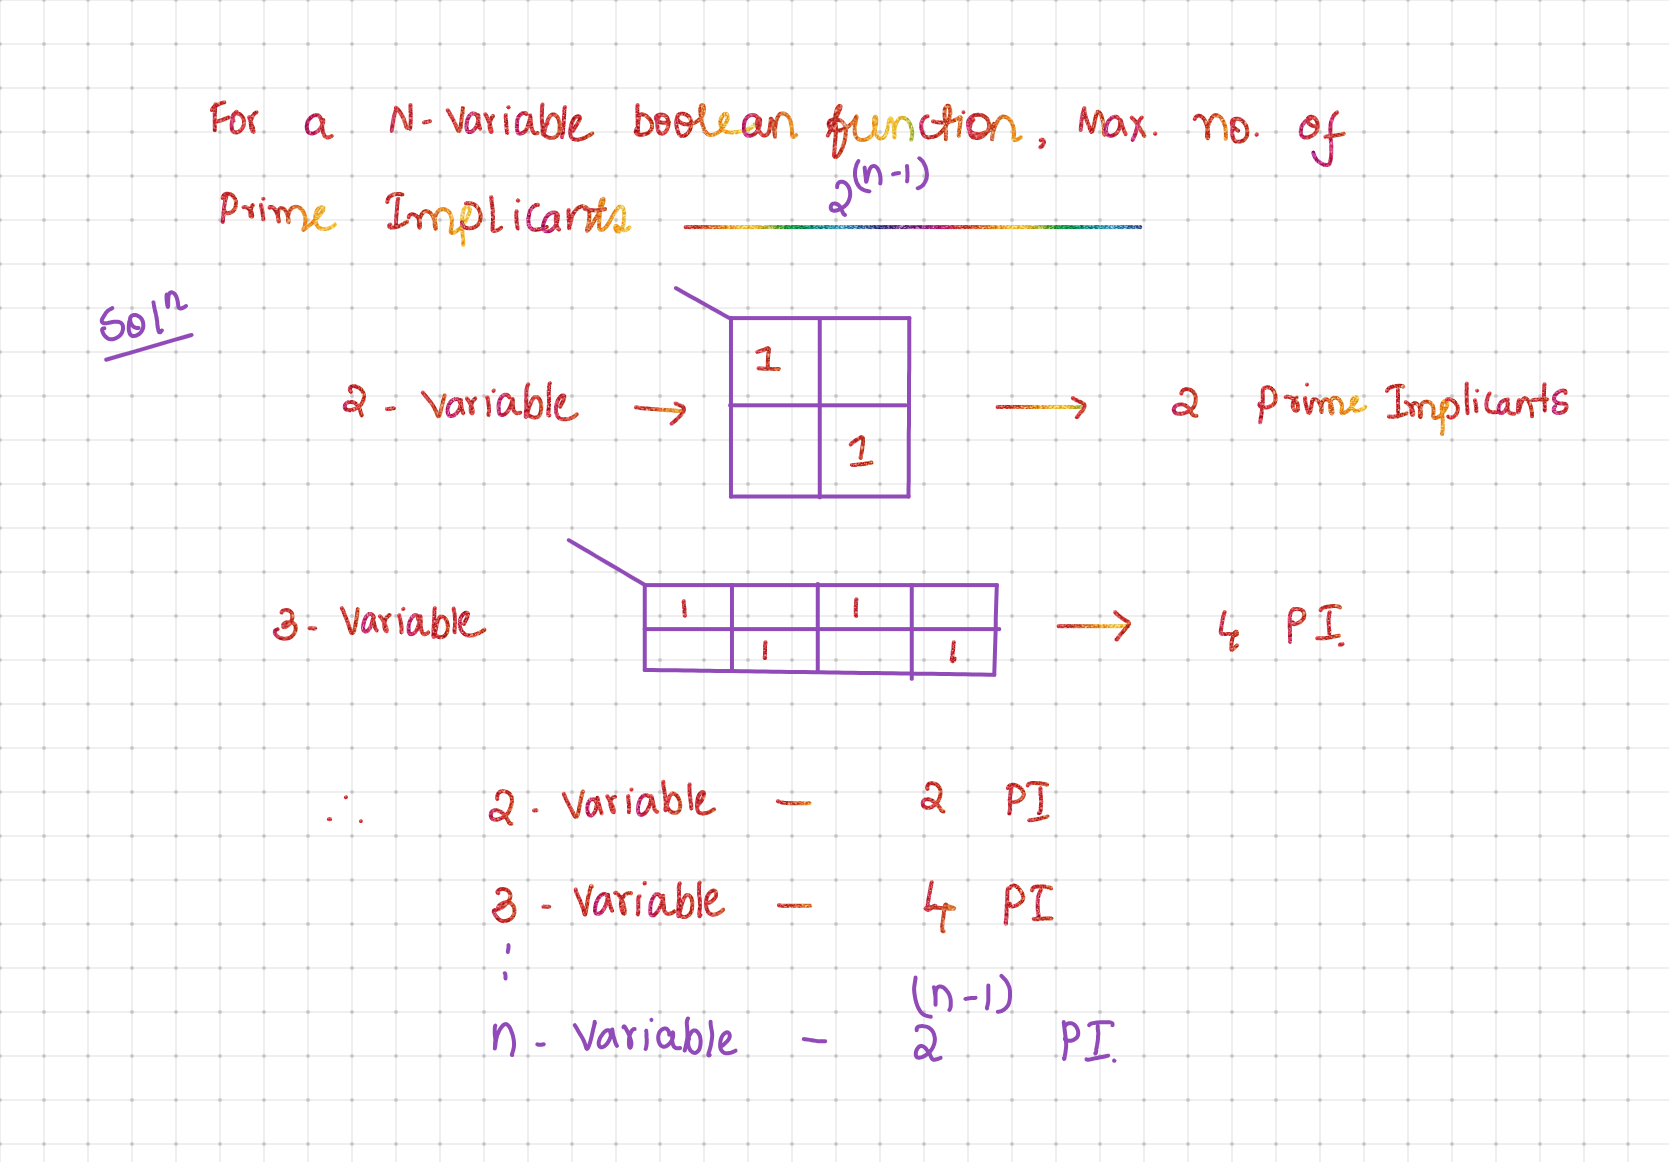 For a N-Variable boolean function, Max. no. of
Prime Implicants 2^(n-1)
Solⁿ
1
2 - Variable → → 2 Prime Implicants
1
1 1
3 - Variable → 4 PI.
1 1
∴ 2 - Variable — 2 PI
3 - Variable — 4 PI
⋮
n - Variable — 2^(n-1) PI.